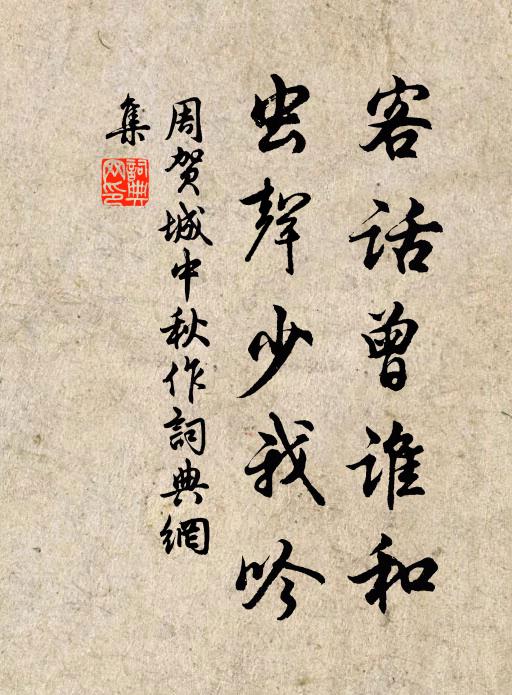 客话曾谁和
虫聲少我吟
周贺城中秋作詞典網
集
詞典
网印